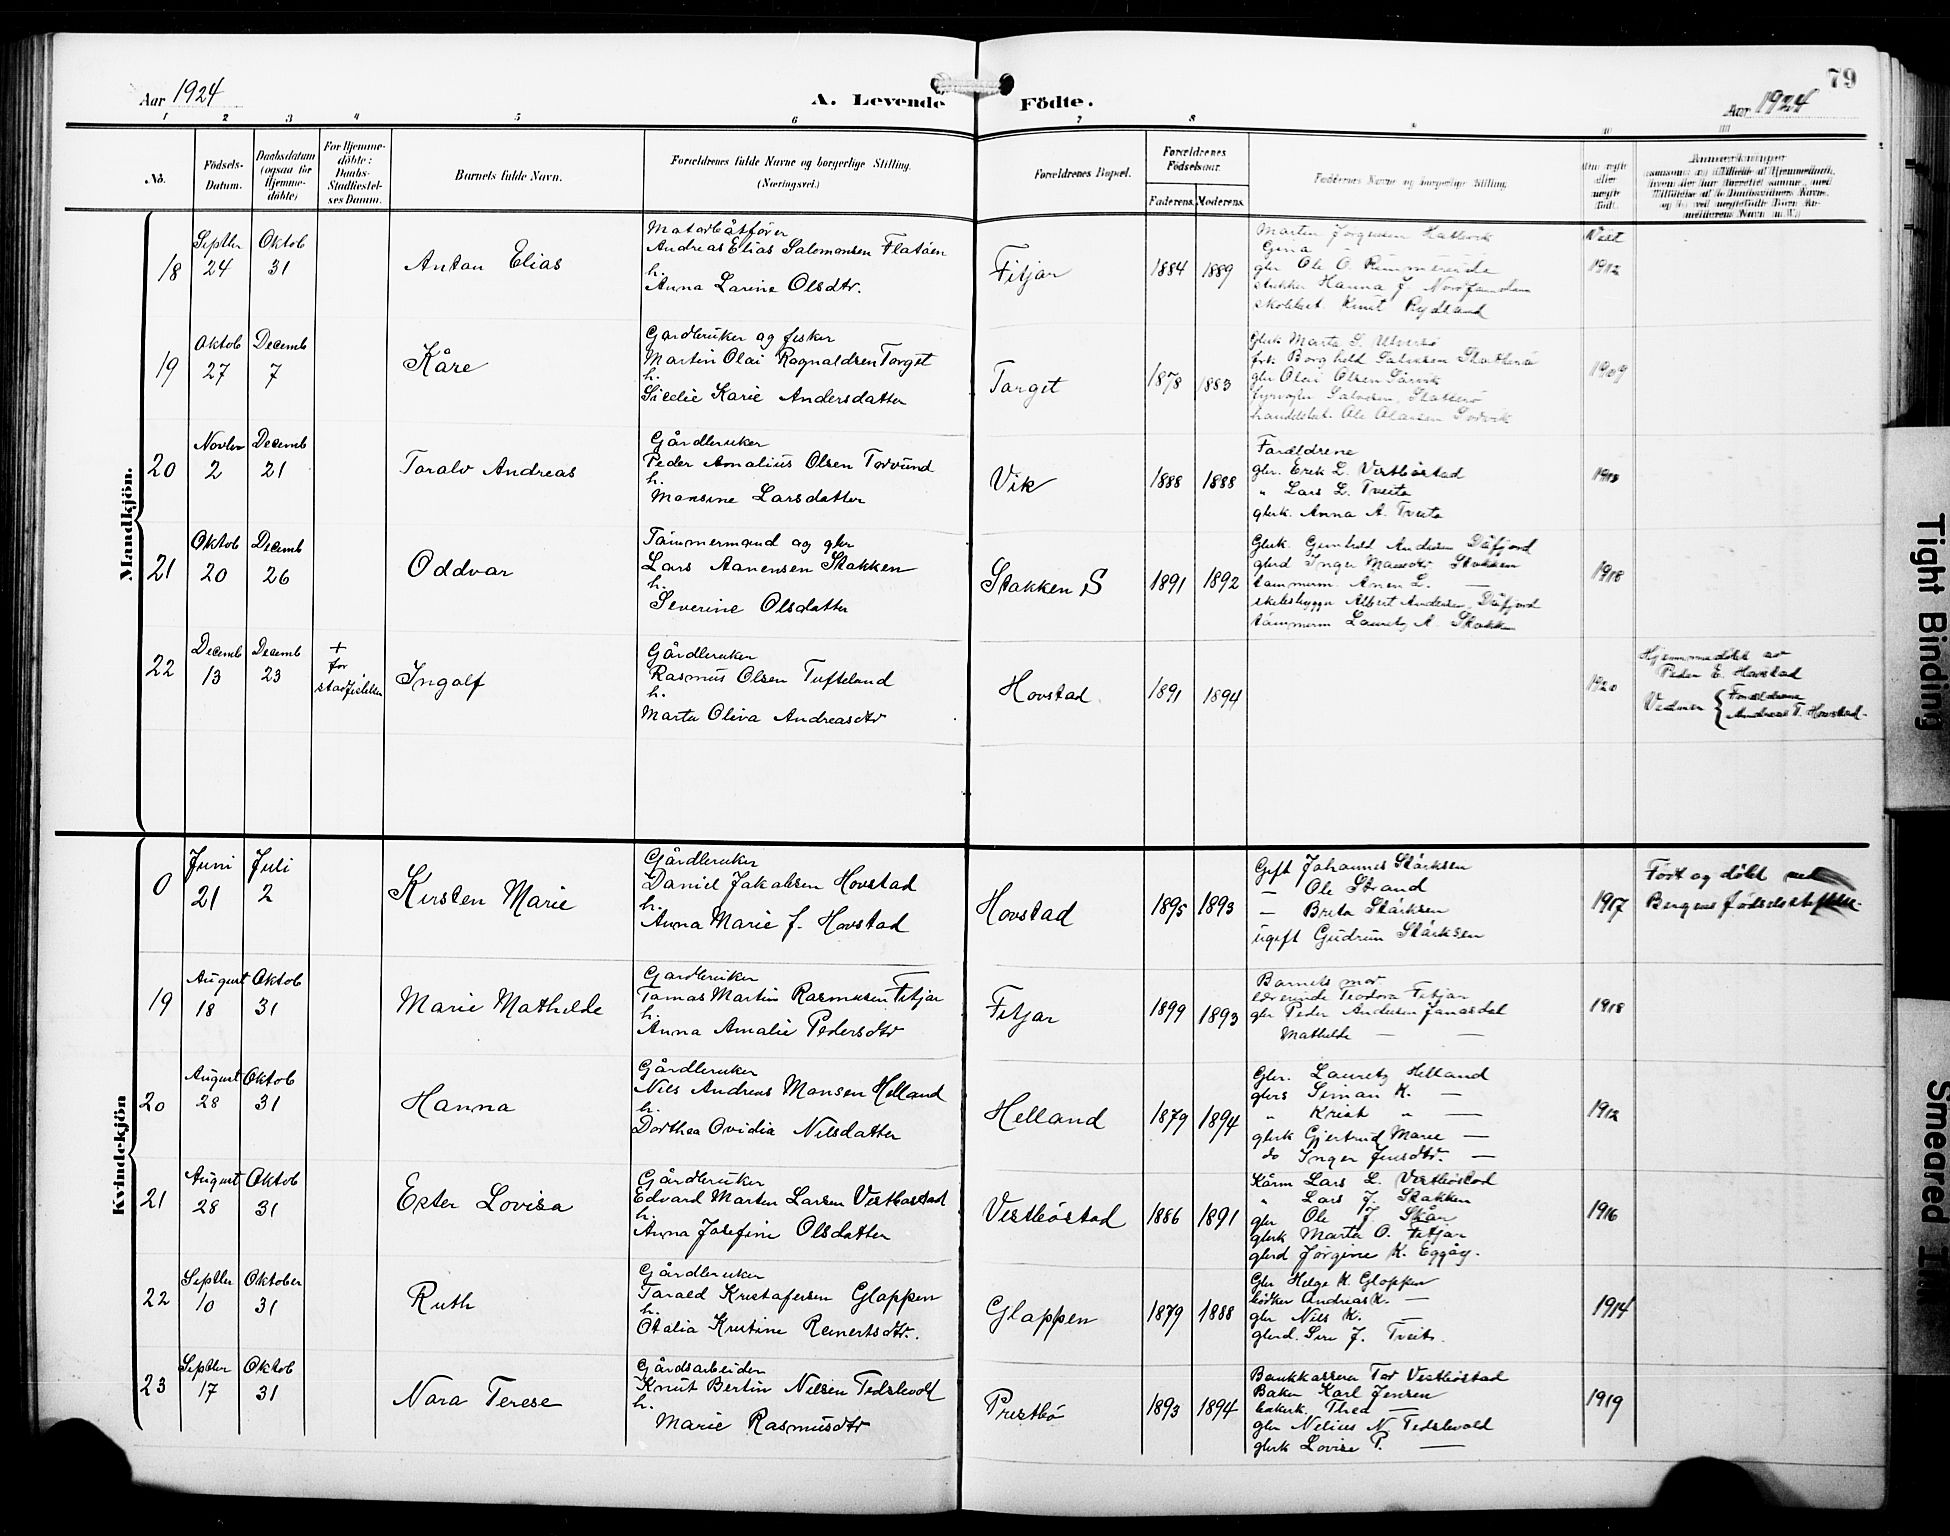 Aar 1924
A. Levende Födte.
Aar 1924
79
1 2 3 4 5 6 7 8 9 10 11
No.
Födsels-Datum.
Daabsdatum (ogsaa for Hjemme-döbte)
For Hjemme-döbte: Daabs-Stadfæstel-ses Datum.
Barnets fulde Navn.
Forældrenes fulde Navne og borgerlige Stilling.
(Næringsvei.)
Forældrenes Bopæl.
Forældrenes Födselsaar.
Faderens. Moderens.
Faddernes Navne og borgerlige Stilling.
Mandkjön.
18
Septbr 24
Oktob 31
Anton Elias
Motorbåtfører
Andreas Elias Salomonsen Flatöen
h.
Anna Larine Olsdtr.
Fitjar
1884
1889
Marten Jørgensen Hattevik
Gina —
gbr Ole O. Rimmereide
Hanna J.
Knut Rydland
1912
19
Oktob 27
Decemb 7
Kåre
Gardbruker og fisker
Martin Olai Ragnaldsen Torget
h.
Sicelie Karie Andersdatter
Torget
1878
1883
Gbrk Marta S.
frk. Borghild
gbr Olai Olsen Sørvik
1909
20
Novbr 2
Decemb 21
Toralv Andreas
Gårdbruker
Peder Amalius Olsen Torvund
h.
Monsine Larsdatter
Vik
1888
1888
Forældrene
gbr. Erik L. Vestbøstad
" Lars L. Tveita
gbrk. Anna A. Tveita
21
Oktob 20
Decemb 26
Oddvar
Tömmermand og gbr
Lars Aanensen Stokken
h.
Severine Olsdatter
Stokken S
1891
1892
Gbrk. Gunhild Andersen Dåfjord
gbrd Inger Monsdtr Stokken
tømmerm. Anen L. —
skibsbygger Albert Andersen, Dåfjord
tømmerm Lauritz A. Stokken
1918
22
Decemb 13
Decemb 23
+ for stadfæstelsen
Ingolf
Gårdbruker
Rasmus Olsen Tufteland
h.
Marta Oliva Andreasdtr
Hovstad.
1891
1894
1920
Hjemmedöbt av
Peder E. Hovstad
Vidner { Forældrene
Andreas T. Hovstad.
Kvindekjön
0
Juni 21
Juli 2
Kirsten Marie
Gårdbruker
Daniel Jakobsen Hovstad
h.
Anna Marie f. Hovstad
Hovstad
1895
1893
Gift Johannes Størksen
— Ole Strand
— Brita Størksen
ugift Gudrun Størksen
1917
Født og døbt ved
Bergens fødselsstiftelse.
19
August 18
Oktob 31
Marie Mathilde
Gardbruker
Tomas Martin Rasmusen Fitjar
h.
Anna Amalie Pedersdtr
Fitjar
1899
1893
Barnets mor
lærerinde Teodora Fitjar
gbr Peder Andersen Jonasdal
Mathilde — —
1918
20
August 28
Oktob 31
Hanna
Gårdbruker
Nils Andreas Monsen Helland
h.
Dorthea Ovidia Nilsdatter
Helland
1879
1894
Gbr. Lauritz Helland
gbrs Simon K. —
" Krist " —
gbrk Gjertrud Marie —
do Inger Jensdtr. —
1912
21
August 28
Oktob 31
Ester Lovisa
Gårdbruker
Edvard Marten Larsen Vestbøstad
h.
Anna Josefine Olsdatter
Vestbøstad
1886
1891
Kårm Lars L. Vestbøstad
" Lars J. Stokken
gbr Ole J. Skår
gbrk Marta O. Fitjar
gbrd Jørgine K. Eggøy.
1916
22
Septbr 10
Oktober 31
Ruth
Gårdbruker
Torald Kristofersen Gloppen
h.
Otalia Kristine Reinertsdtr.
Gloppen
1879
1888
Gbr Helge K. Gloppen
bøtker Andreas K. —
gbr Nils K. —
gbrd. Siri J. Tveita.
1914
23
Septbr 17
Oktob 31
Nora Terese
Gårdsarbeider
Knut Bertin Nilsen Tedslevold
h.
Marie Rasmusdtr
Prestbø
1893
1894
Bankkasserer Tor Vestbøstad
Baker Karl Jensen
bakerk. Thea —
gbr Nelius N. Tedslevold
gbrk Lovise P. —
1919
Tight Binding
Smeared Ink